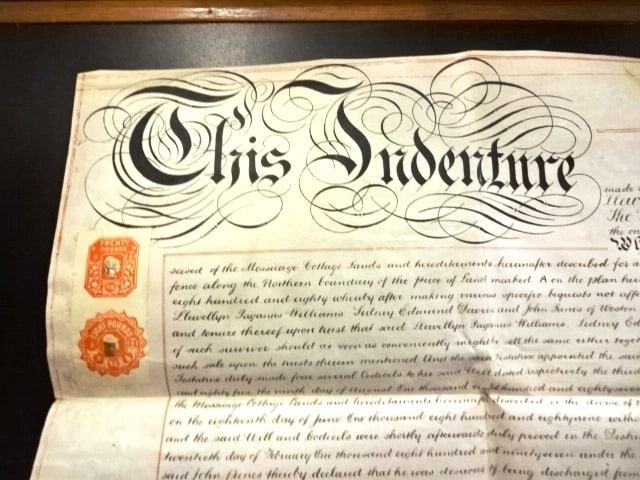 This Indenture
made
The
the
TWENTY
POUNDS
EIGHT POUNDS
seised of the Messuage Cottage Lands and hereditaments hereinafter described for a
fence along the Northern boundary of the piece of Land marked A on the plan
eight hundred and eighty whereby after making various specific bequests not
Llewellyn Paganus Williams Sidney Edmund Davies and John Jones of Weston
and tenure thereof upon trust that said Llewellyn Paganus Williams. Sidney
of such survivor should as soon as conveniently might be sell the same either
such sale upon the trusts therein mentioned And the said Testatrix appointed the
Testatrix duly made four several Codicils to her said Will dated respectively the third
and eighty five the ninth day of August One thousand eight hundred and eightyseven
the Messuage Cottage Lands and hereditaments described in the
on the eighteenth day of June One thousand eight hundred and eightynine
and the said Will and Codicils were shortly afterwards duly proved in the
twentieth day of February One thousand eight hundred and ninetyseven under the
said John Jones thereby declared that he was desirous of being discharged from